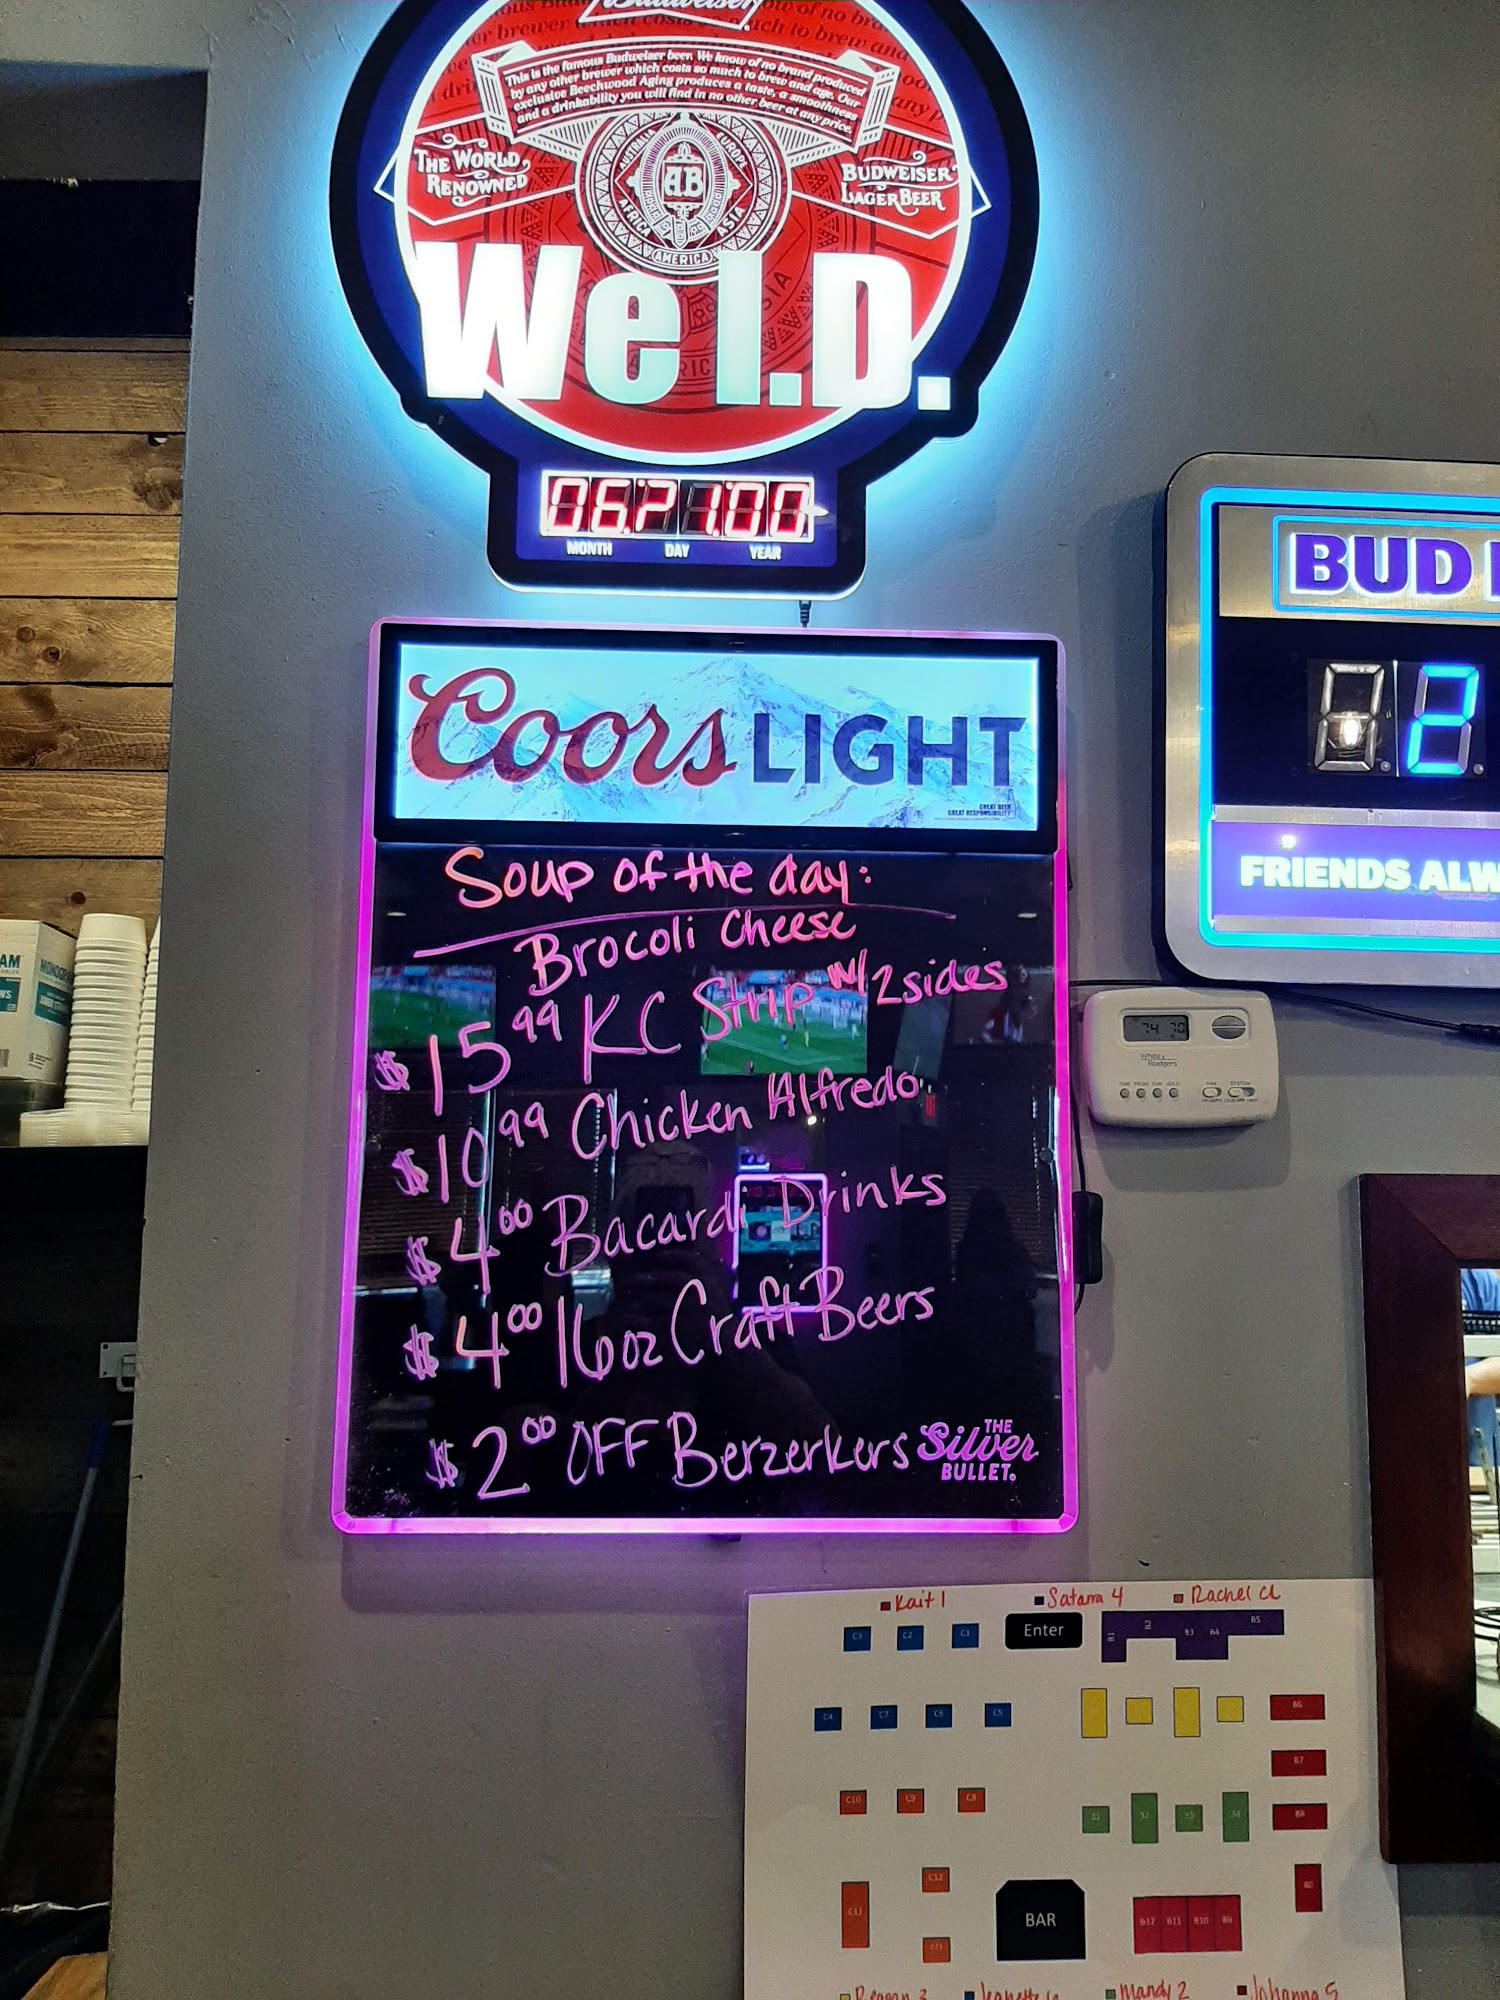 Budweiser
This is the famous Budweiser beer. We know of no brand produced
by any other brewer which costs so much to brew and age. Our
exclusive Beechwood Aging produces a taste, a smoothness
and a drinkability you will find in no other beer at any price.
THE WORLD RENOWNED
BUDWEISER LAGER BEER
AUSTRALIA
EUROPE
AB
AFRICA
ASIA
AMERICA
We I.D.
06.21.00
MONTH DAY YEAR
BUD
2
FRIENDS ALW
Coors LIGHT
GREAT BEER
GREAT RESPONSIBILITY
Soup of the day:
Brocoli Cheese
$15.99 KC Strip w/2sides
$10.99 Chicken Alfredo
$4.00 Bacardi Drinks
$4.00 16oz Craft Beers
$2.00 OFF Berzerkers
THE
Silver
BULLET.
74 70
White Rodgers
Kait 1 Satarra 4 Rachel CL
C3 C2 C1 Enter B1 B2 B3 B4 B5
C4 C7 C6 C5 B6
B7
C10 C9 C8 B8
C12
C11 BAR B12 B11 B10 B9
Reagan 3 Jeanette 6 Mandy 2 Johanna 5